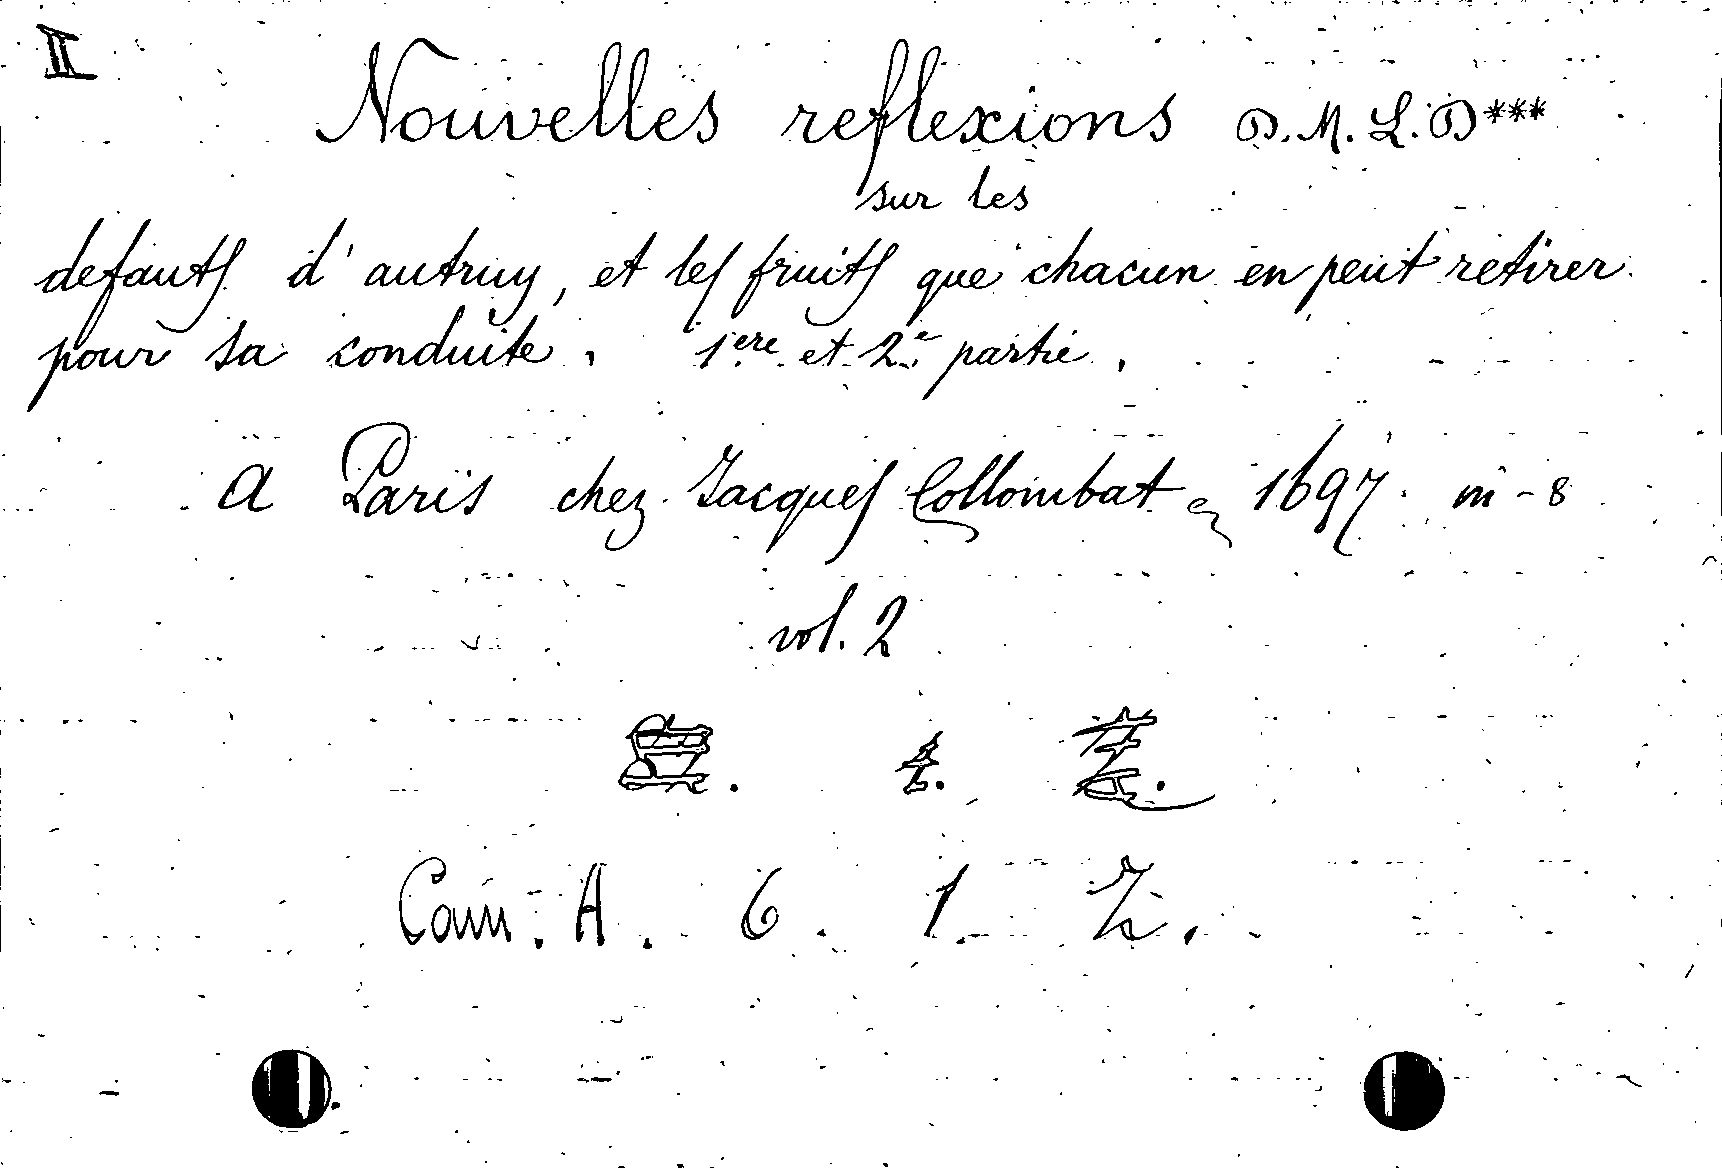 II
Nouvelles reflexions D. M. L. D***
sur les
defauts d'autruy, et les fruits que chacun en peut retirer
pour sa conduite. 1ere et 2e partie.
a Paris chez Jacques Collombat en 1697. in-8
vol. 2
Cam. A. 6. 1. Z.